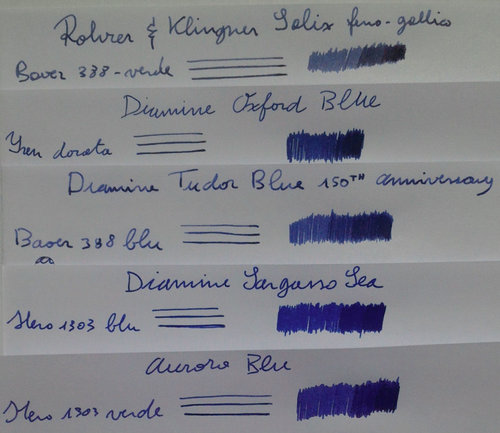 Rohrer & Klingner Salix ferro-gallico
Baoer 388-verde
Diamine Oxford Blue
Yren dorata
Diamine Tudor Blue 150TH anniversary
Baoer 388 blu
Diamine Sargasso Sea
Hero 1303 blu
Aurora Blu
Hero 1303 verde